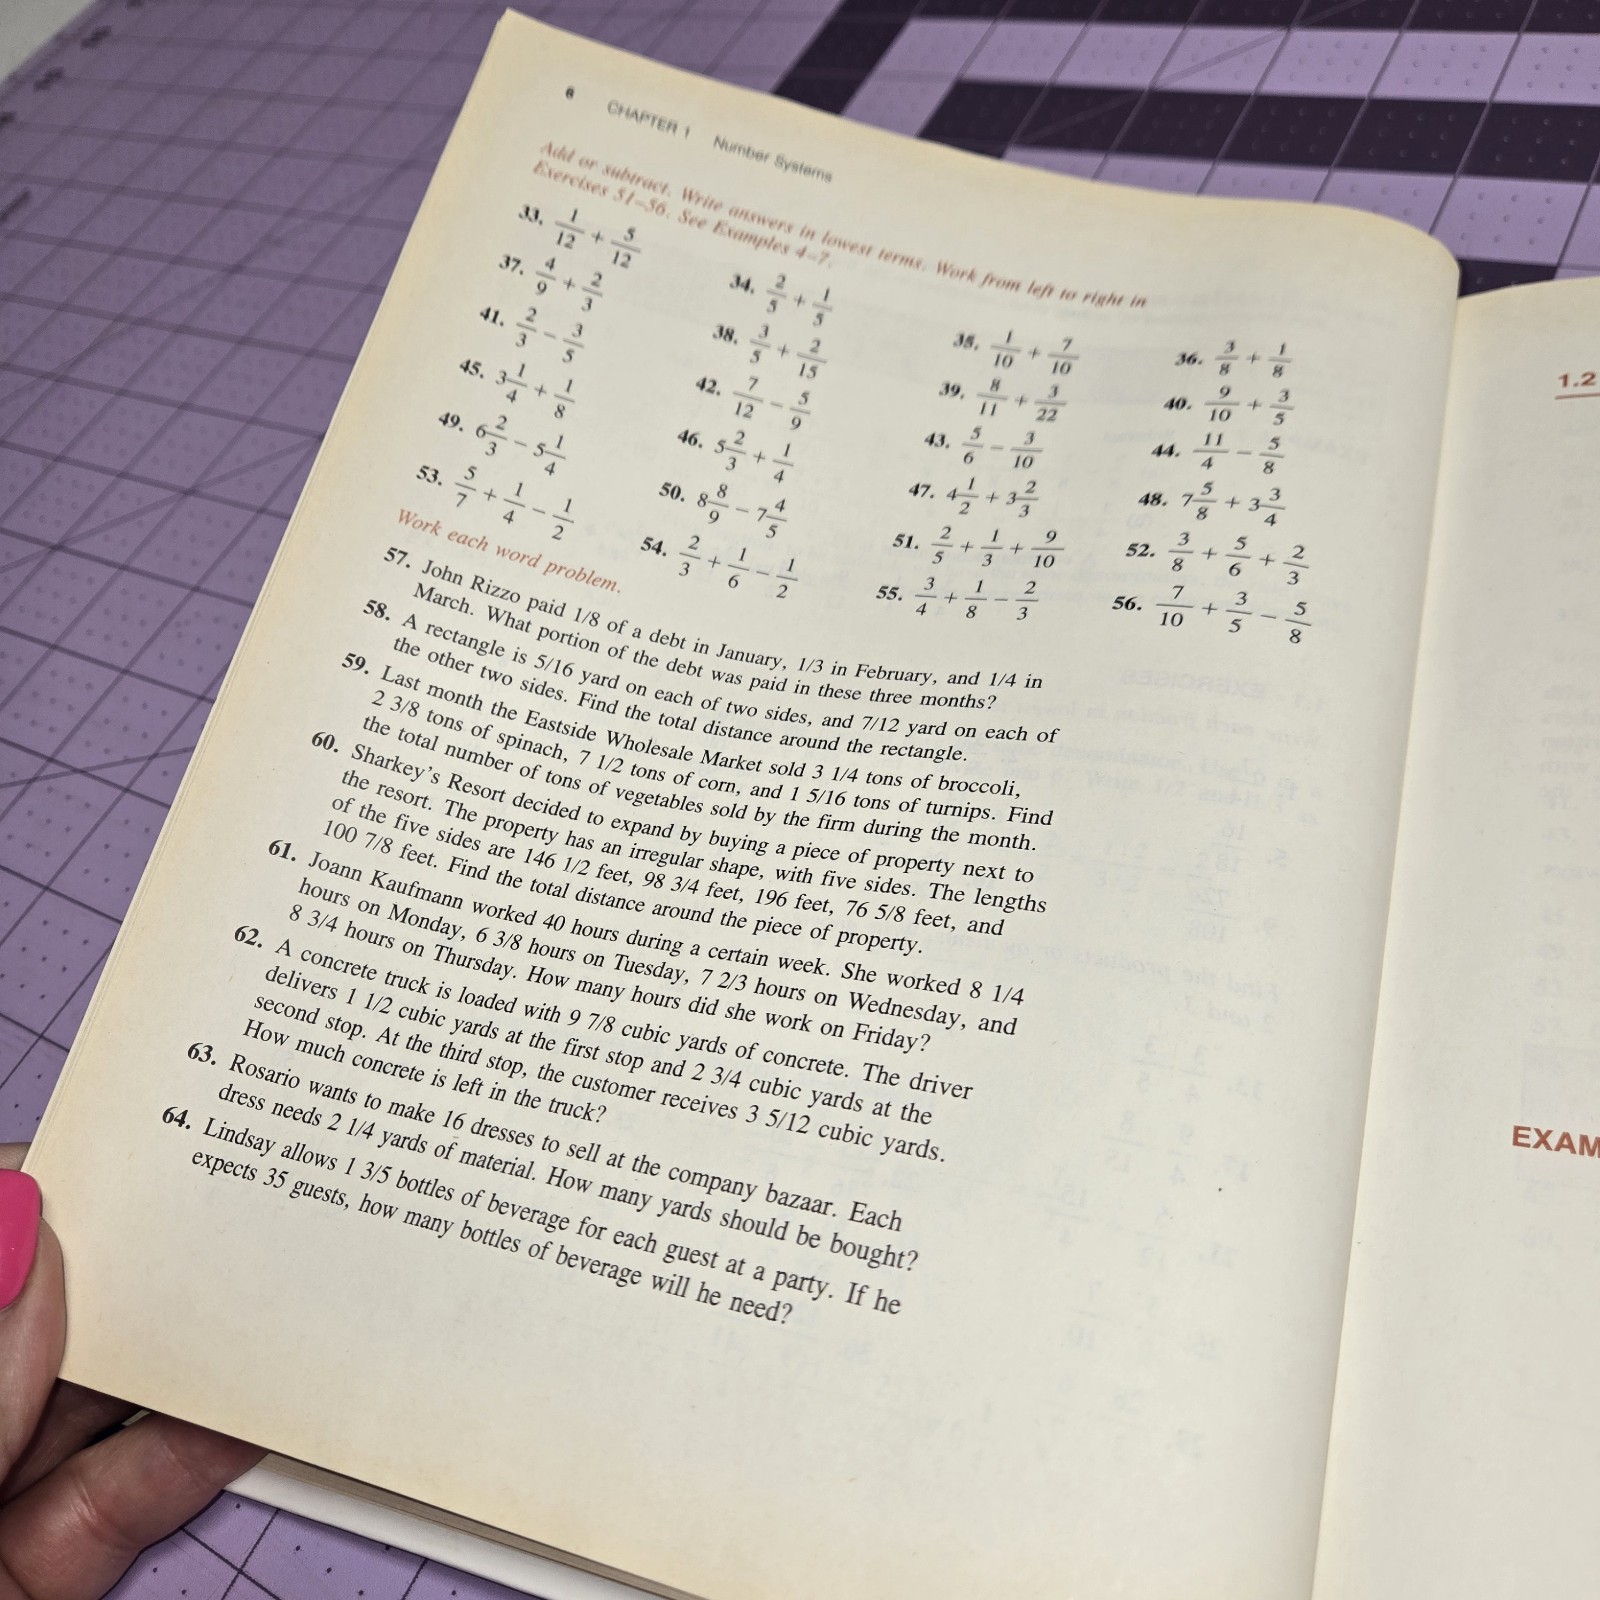 6 CHAPTER 1 Number Systems
Add or subtract. Write answers in lowest terms. Work from left to right in
Exercises 51–56. See Examples 4–7.
33. 1/12 + 5/12 34. 2/5 + 1/5 35. 1/10 + 7/10 36. 3/8 + 1/8
37. 4/9 + 2/3 38. 3/5 + 2/15 39. 8/11 + 3/22 40. 9/10 + 3/5
41. 2/3 − 3/5 42. 7/12 − 5/9 43. 5/6 − 3/10 44. 11/4 − 5/8
45. 3 1/4 + 1/8 46. 5 2/3 + 1/4 47. 4 1/2 + 3 2/3 48. 7 5/8 + 3 3/4
49. 6 2/3 − 5 1/4 50. 8 8/9 − 7 4/5 51. 2/5 + 1/3 + 9/10 52. 3/8 + 5/6 + 2/3
53. 5/7 + 1/4 − 1/2 54. 2/3 + 1/6 − 1/2 55. 3/4 + 1/8 − 2/3 56. 7/10 + 3/5 − 5/8
Work each word problem.
57. John Rizzo paid 1/8 of a debt in January, 1/3 in February, and 1/4 in
March. What portion of the debt was paid in these three months?
58. A rectangle is 5/16 yard on each of two sides, and 7/12 yard on each of
the other two sides. Find the total distance around the rectangle.
59. Last month the Eastside Wholesale Market sold 3 1/4 tons of broccoli,
2 3/8 tons of spinach, 7 1/2 tons of corn, and 1 5/16 tons of turnips. Find
the total number of tons of vegetables sold by the firm during the month.
60. Sharkey's Resort decided to expand by buying a piece of property next to
the resort. The property has an irregular shape, with five sides. The lengths
of the five sides are 146 1/2 feet, 98 3/4 feet, 196 feet, 76 5/8 feet, and
100 7/8 feet. Find the total distance around the piece of property.
61. Joann Kaufmann worked 40 hours during a certain week. She worked 8 1/4
hours on Monday, 6 3/8 hours on Tuesday, 7 2/3 hours on Wednesday, and
8 3/4 hours on Thursday. How many hours did she work on Friday?
62. A concrete truck is loaded with 9 7/8 cubic yards of concrete. The driver
delivers 1 1/2 cubic yards at the first stop and 2 3/4 cubic yards at the
second stop. At the third stop, the customer receives 3 5/12 cubic yards.
How much concrete is left in the truck?
63. Rosario wants to make 16 dresses to sell at the company bazaar. Each
dress needs 2 1/4 yards of material. How many yards should be bought?
64. Lindsay allows 1 3/5 bottles of beverage for each guest at a party. If he
expects 35 guests, how many bottles of beverage will he need?
1.2
EXAM